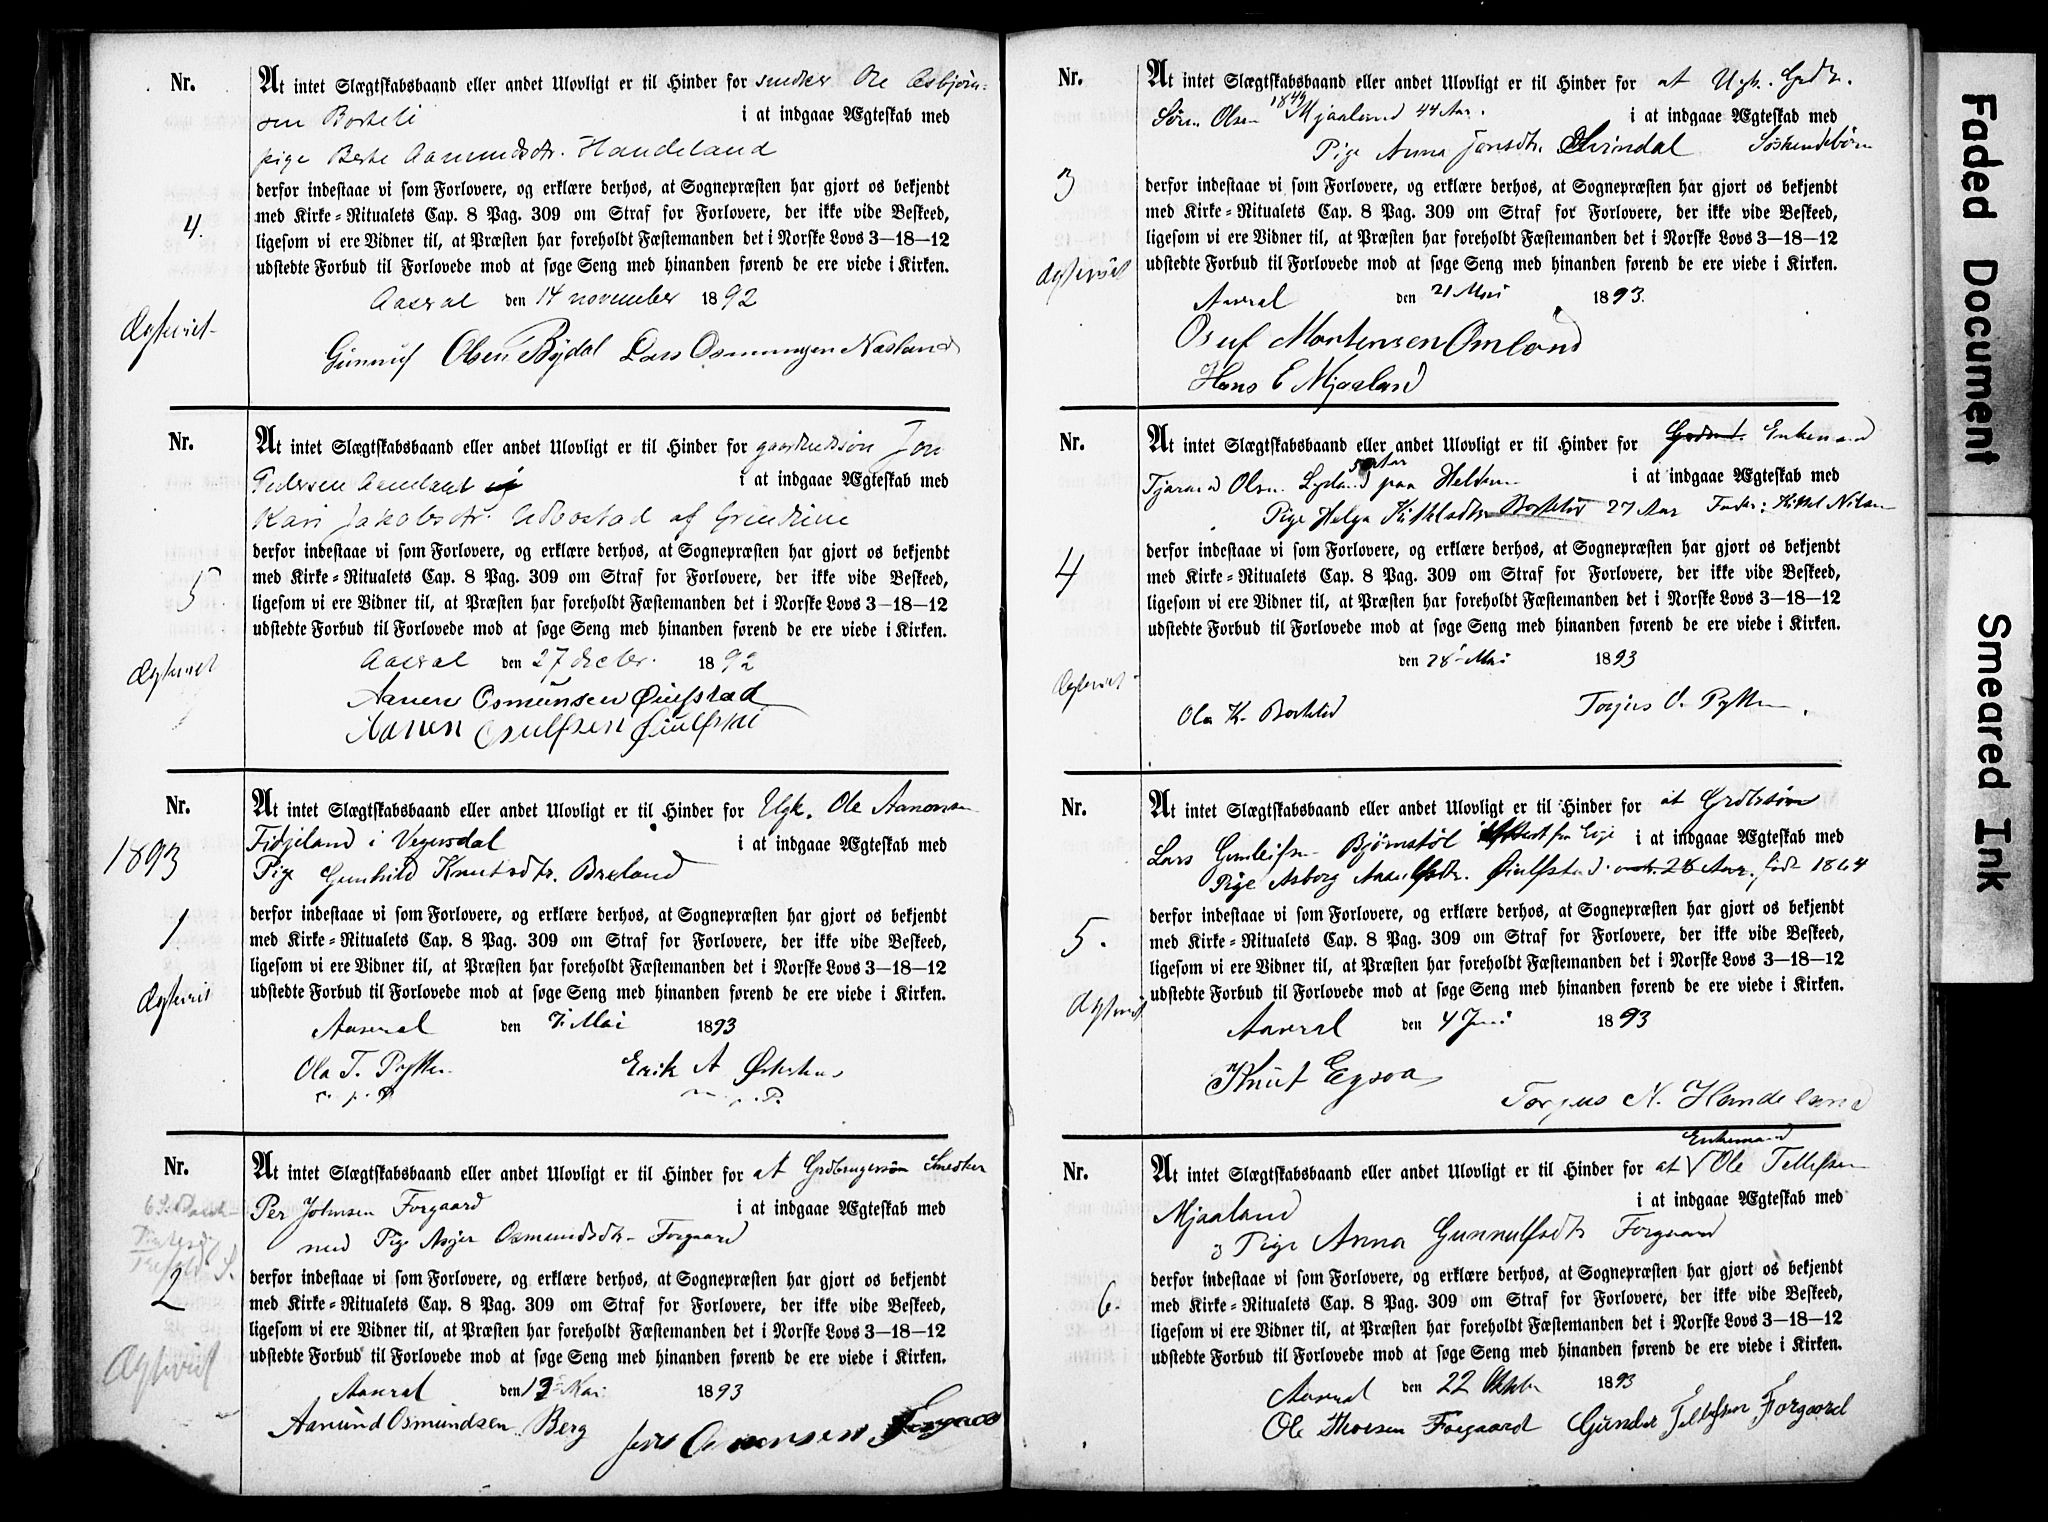 Nr.
At intet Slægtskabsbaand eller andet Ulovligt er til Hinder for snedker Ole Asbjørn-
sen Borteli i at indgaae Ægteskab med
pige Berte Aamundsdtr. Handeland
4.
derfor indestaae vi som Forlovere, og erklære derhos, at Sognepræsten har gjort os bekjendt
med Kirke-Ritualets Cap. 8 Pag. 309 om Straf for Forlovere, der ikke vide Beskeed,
ligesom vi ere Vidner til, at Præsten har foreholdt Fæstemanden det i Norske Lovs 3—18—12
udstedte Forbud til Forlovede mod at søge Seng med hinanden førend de ere viede i Kirken.
Aaseral den 14 november 1892
Ægteviet
Gunnuf Olsen Bydal Lars Osmungen Nasland
Nr.
At intet Slægtskabsbaand eller andet Ulovligt er til Hinder for Jon
Pedersen i at indgaae Ægteskab med
Kari Jakobsdtr.
5
derfor indestaae vi som Forlovere, og erklære derhos, at Sognepræsten har gjort os bekjendt
med Kirke-Ritualets Cap. 8 Pag. 309 om Straf for Forlovere, der ikke vide Beskeed,
ligesom vi ere Vidner til, at Præsten har foreholdt Fæstemanden det i Norske Lovs 3—18—12
udstedte Forbud til Forlovede mod at søge Seng med hinanden førend de ere viede i Kirken.
Aaseral den 27 decbr. 1892
Ægteviet
Aanen Osmunsen Øiulfstad
Aanen
Nr.
At intet Slægtskabsbaand eller andet Ulovligt er til Hinder for Ugk. Ole Aanonsen
Fidjeland i Vegusdal i at indgaae Ægteskab med
Pige Gunhild Knutsdtr. Breland
1893
1
derfor indestaae vi som Forlovere, og erklære derhos, at Sognepræsten har gjort os bekjendt
med Kirke-Ritualets Cap. 8 Pag. 309 om Straf for Forlovere, der ikke vide Beskeed,
ligesom vi ere Vidner til, at Præsten har foreholdt Fæstemanden det i Norske Lovs 3—18—12
udstedte Forbud til Forlovede mod at søge Seng med hinanden førend de ere viede i Kirken.
Ægteviet
Aaseral den 7. Mai 1893
Ola T. Pytten Erik A
m. p. P. m. p. P.
Nr.
At intet Slægtskabsbaand eller andet Ulovligt er til Hinder for at Grdbrugersøn Snedker
Per Johnsen Forgaard i at indgaae Ægteskab med
med Pige Asjer Osmundsdtr. Forgaard
2
derfor indestaae vi som Forlovere, og erklære derhos, at Sognepræsten har gjort os bekjendt
med Kirke-Ritualets Cap. 8 Pag. 309 om Straf for Forlovere, der ikke vide Beskeed,
ligesom vi ere Vidner til, at Præsten har foreholdt Fæstemanden det i Norske Lovs 3—18—12
udstedte Forbud til Forlovede mod at søge Seng med hinanden førend de ere viede i Kirken.
Ægteviet
Aaseral den 13 Mai 1893
Aanund Osmundsen Berg
Nr.
At intet Slægtskabsbaand eller andet Ulovligt er til Hinder for at Ugk. Grdbr.
Søren Olsen Mjaaland 44 Aar. i at indgaae Ægteskab med
Pige Anna Jonsdtr. Kvindal Søskendebørn
3
derfor indestaae vi som Forlovere, og erklære derhos, at Sognepræsten har gjort os bekjendt
med Kirke-Ritualets Cap. 8 Pag. 309 om Straf for Forlovere, der ikke vide Beskeed,
ligesom vi ere Vidner til, at Præsten har foreholdt Fæstemanden det i Norske Lovs 3—18—12
udstedte Forbud til Forlovede mod at søge Seng med hinanden førend de ere viede i Kirken.
Ægteviet
Aaseral den 21 Mai 1893.
Osuf Mortensen Omland
Hans E Mjaaland
Nr.
At intet Slægtskabsbaand eller andet Ulovligt er til Hinder for Enkemand
Tjarand Olsen Ljosland paa i at indgaae Ægteskab med
Pige Helga Kittelsdtr. Bortelid 27 Aar Fader: Kittel Nilsen
4
derfor indestaae vi som Forlovere, og erklære derhos, at Sognepræsten har gjort os bekjendt
med Kirke-Ritualets Cap. 8 Pag. 309 om Straf for Forlovere, der ikke vide Beskeed,
ligesom vi ere Vidner til, at Præsten har foreholdt Fæstemanden det i Norske Lovs 3—18—12
udstedte Forbud til Forlovede mod at søge Seng med hinanden førend de ere viede i Kirken.
den 28 Mai 1893
Ægteviet
Ola K. Bortelid Torjus O. Pytten.
Nr.
At intet Slægtskabsbaand eller andet Ulovligt er til Hinder for at Grdbrsøn
Lars Gunleifsen Bjørnstøl fra Evje i at indgaae Ægteskab med
Pige Asborg Øiulfstad 28 Aar, født 1864
5.
derfor indestaae vi som Forlovere, og erklære derhos, at Sognepræsten har gjort os bekjendt
med Kirke-Ritualets Cap. 8 Pag. 309 om Straf for Forlovere, der ikke vide Beskeed,
ligesom vi ere Vidner til, at Præsten har foreholdt Fæstemanden det i Norske Lovs 3—18—12
udstedte Forbud til Forlovede mod at søge Seng med hinanden førend de ere viede i Kirken.
Ægteviet
Aaseral den 4 Juni 1893
Knut Egsaa
Torgus N. Handeland
Enkemand
Nr.
At intet Slægtskabsbaand eller andet Ulovligt er til Hinder for at Ole Tellefsen
Mjaaland i at indgaae Ægteskab med
Pige Anna Gunnulfsdtr Forgaard
6.
derfor indestaae vi som Forlovere, og erklære derhos, at Sognepræsten har gjort os bekjendt
med Kirke-Ritualets Cap. 8 Pag. 309 om Straf for Forlovere, der ikke vide Beskeed,
ligesom vi ere Vidner til, at Præsten har foreholdt Fæstemanden det i Norske Lovs 3—18—12
udstedte Forbud til Forlovede mod at søge Seng med hinanden førend de ere viede i Kirken.
Aaseral den 22 Oktober 1893
Ole Thorsen Forgaard Gunder Tellefsen Forgaard
Faded Document
Smeared Ink